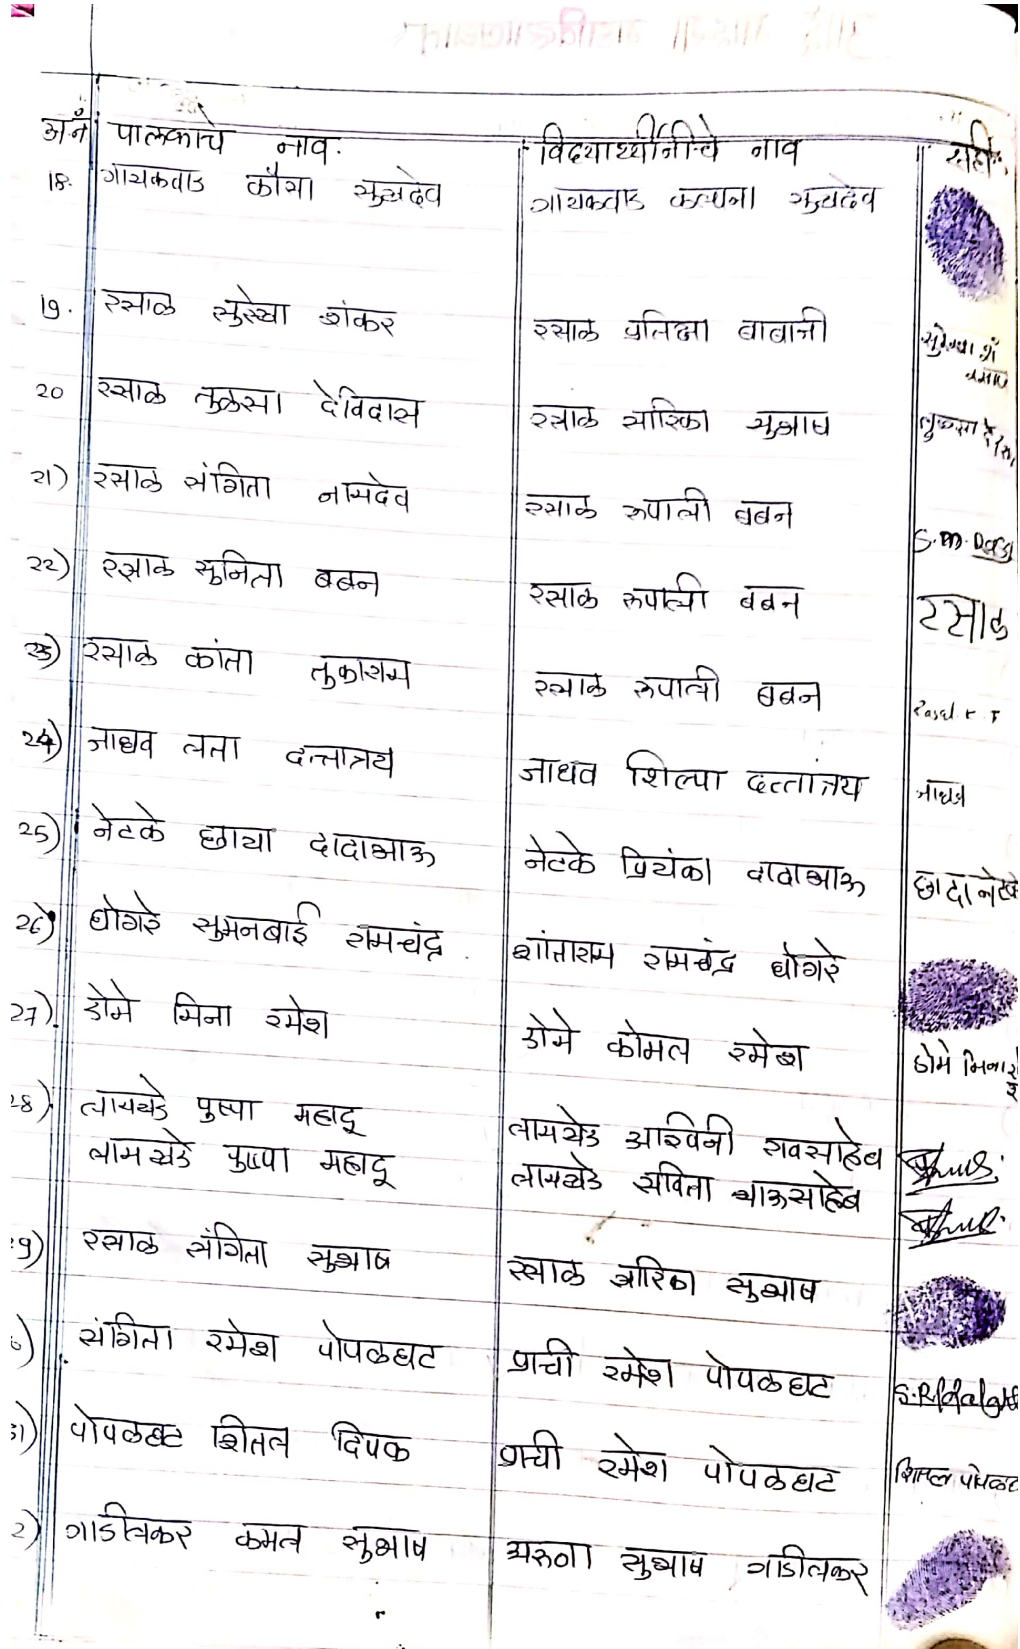 अ.नं पालकाचे नाव. विद्यार्थ्यीनीचे नाव सही.
18. गायकवाड कौसा सुखदेव गायकवाड कल्पना सुखदेव
19. रसाळ सुरेखा शंकर रसाळ प्रतिक्षा बाबाजी
20 रसाळ तुळसा देविदास रसाळ सारिका सुभाष
21) रसाळ संगिता नामदेव रसाळ रुपाली बबन
22) रसाळ सुनिता बबन रसाळ रुपाली बबन रसाळ
23) रसाळ कांता तुकाराम रसाळ रुपाली बबन
24) जाधव लता दत्तात्रय जाधव शिल्पा दत्तात्रय जाधव
25) नेटके छाया दादाभाऊ नेटके प्रियंका दादाभाऊ छा दा नेटके
26) घोगरे सुमनबाई रामचंद्र. शांताराम रामचंद्र घोगरे
27) डोमे मिना रमेश डोमे कोमल रमेश डोमे मिना र
28) लामखडे पुष्पा महादू लामखडे अश्विनी रावसाहेब
लामखडे पुष्पा महादू लामखडे सविता भाऊसाहेब
29) रसाळ संगिता सुभाष रसाळ सारिका सुभाष
संगिता रमेश पोपळघट प्राची रमेश पोपळघट
31) पोपळघट शितल दिपक प्राची रमेश पोपळघट शितल पोपळघट
2) गाडीलकर कमल सुभाष अरुणा सुभाष गाडीलकर